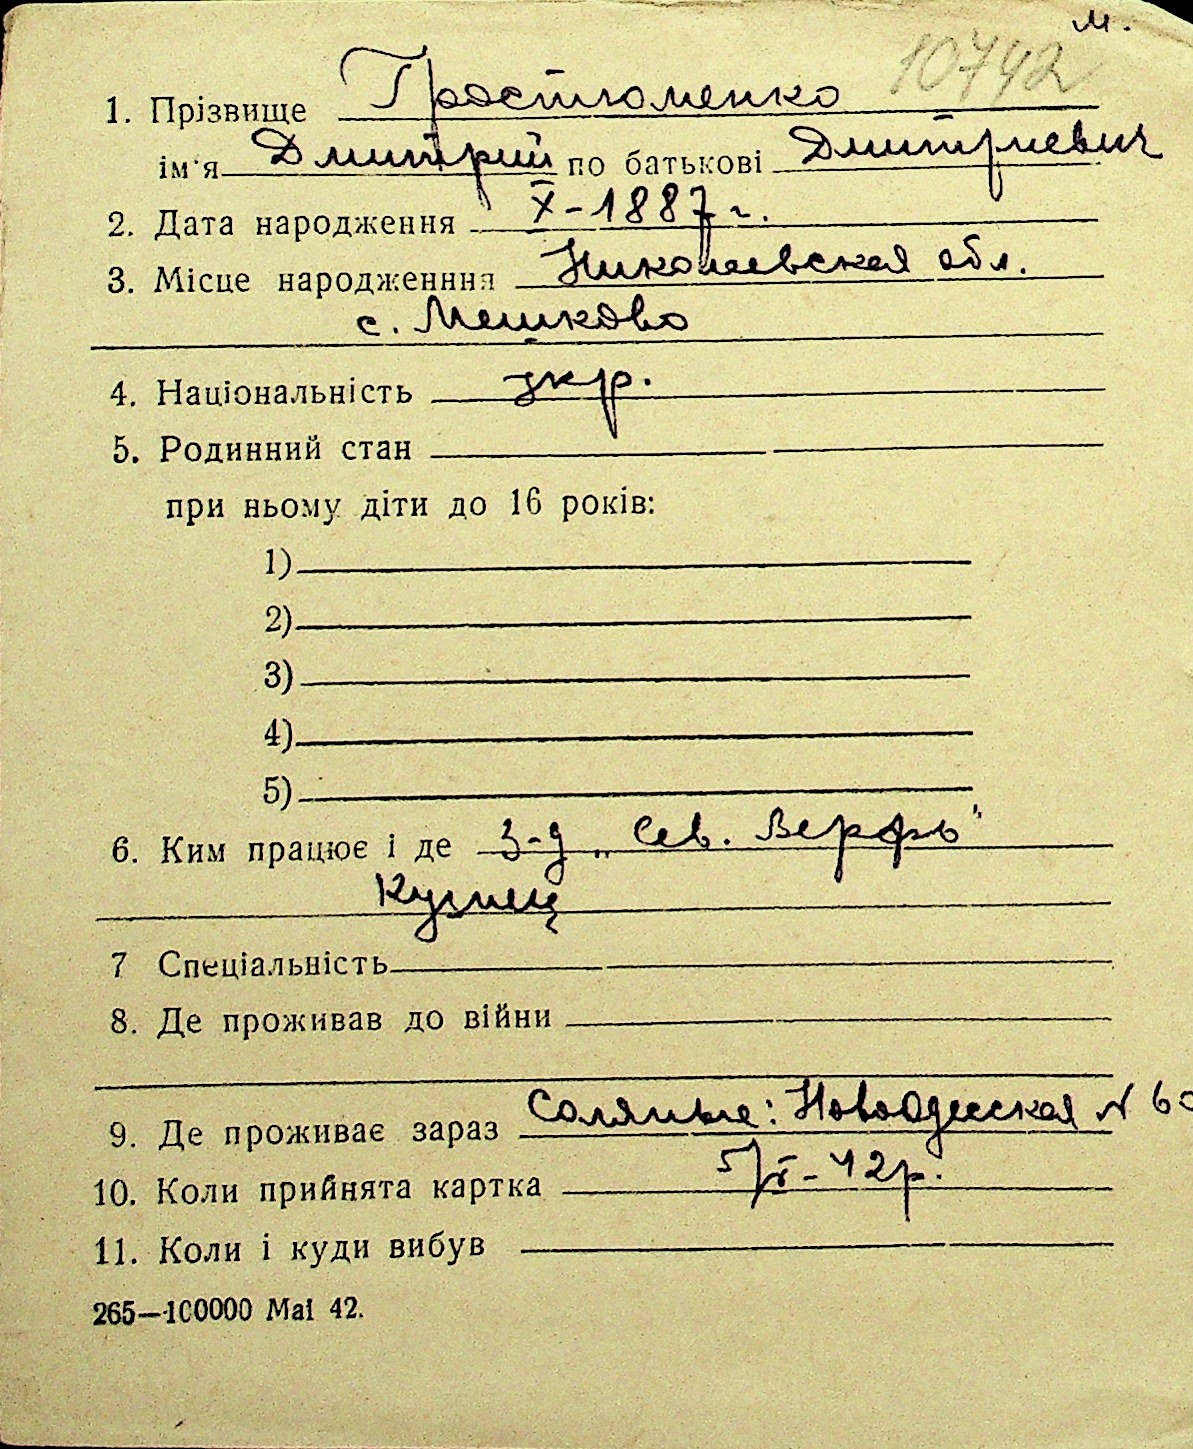 м.
10742
1. Прізвище Тростломенко
ім'я Дмитрий по батькові Дмитриевич
2. Дата народження X-1887 г.
3. Місце народженння Николаевская обл.
с. Мешково
4. Національність укр.
5. Родинний стан
при ньому діти до 16 років:
1)
2)
3)
4)
5)
6. Ким працює і де З-д „Сев. Верфь"
Кузнец
7 Спеціальність
8. Де проживав до війни
9. Де проживає зараз Соляные: НовоОдесская N 60
10. Коли прийнята картка 5/X-42р.
11. Коли і куди вибув
265—100000 Mai 42.